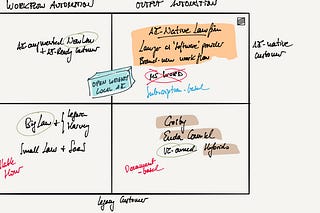 WORKFLOW AUTOMATION
OUTPUT AUTOMATION
AI-augmented NewLaw
+ AI-Ready Customer
AI-Native Lawfirm
Lawyer as Software provider
Brand-new workflow
MS WORD
Subscription-based
OPEN WEIGHTS
LOCAL AI
AI-native
Customer
Big Law +
Legora
Harvey
Small Law + SaaS
Crosby
Eudia Counsel
VC-owned Hybrids
Document-
based
Legacy Customer